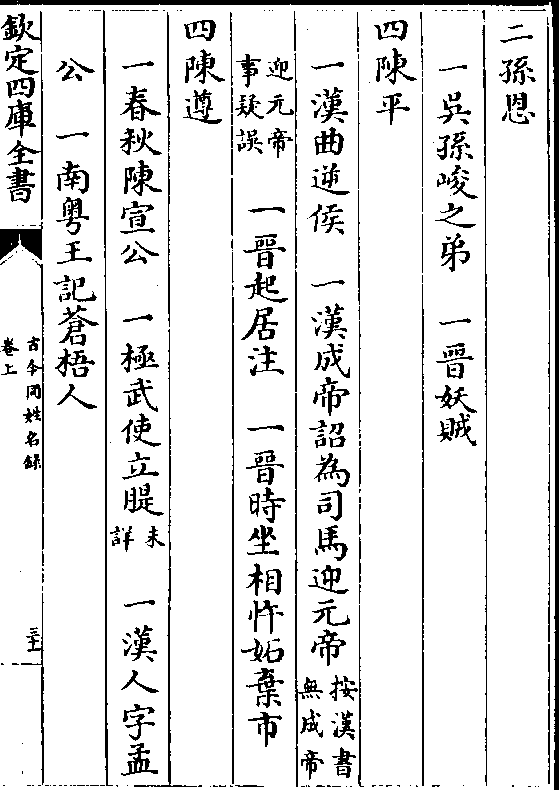 二孫恩
一吳孫峻之弟　一晉妖賊
四陳平
一漢曲逆侯　一漢成帝詔為司馬迎元帝按漢書無成帝
迎元帝事疑誤　一晉起居注　一晉時坐相忤妬棄市
四陳遵
一春秋陳宣公　一極武使立腥未詳　一漢人字孟
公　一南粵王記蒼梧人
欽定四庫全書
古今同姓名錄
卷上